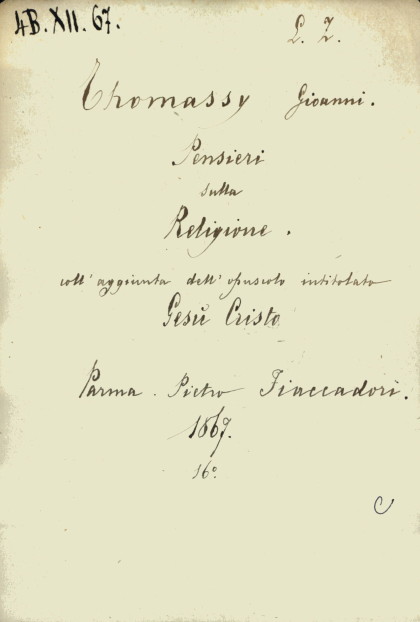 4B.XII.67.
L. Z.
Thomassy Gioanni.
Pensieri
sulla
Religione.
coll' aggiunta dell' opuscolo intitolato
Gesù Cristo
Parma. Pietro Fiaccadori.
1867.
16°.
C